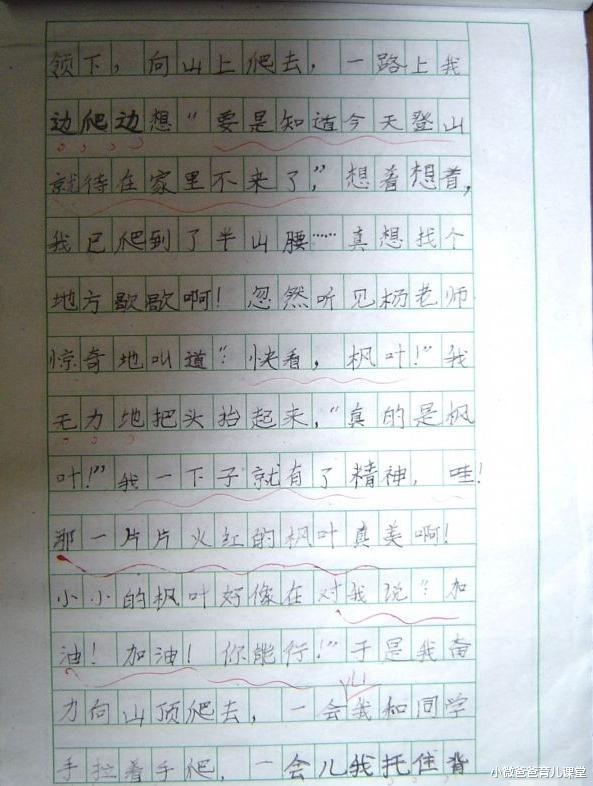 领下，向山上爬去，一路上我
边爬边想“要是知道今天登山
就待在家里不来了，”想着想着，
我已爬到了半山腰……真想找个
地方歇歇啊！忽然听见杨老师
惊奇地叫道“：快看，枫叶！”我
无力地把头抬起来，“真的是枫
叶！”我一下子就有了精神，哇！
那一片片火红的枫叶真美啊！
小小的枫叶好像在对我说“：加
油！加油！你能行！”于是我奋
儿
力向山顶爬去，一会我和同学
手拉着手爬，一会儿我托住背
小微爸爸育儿课堂